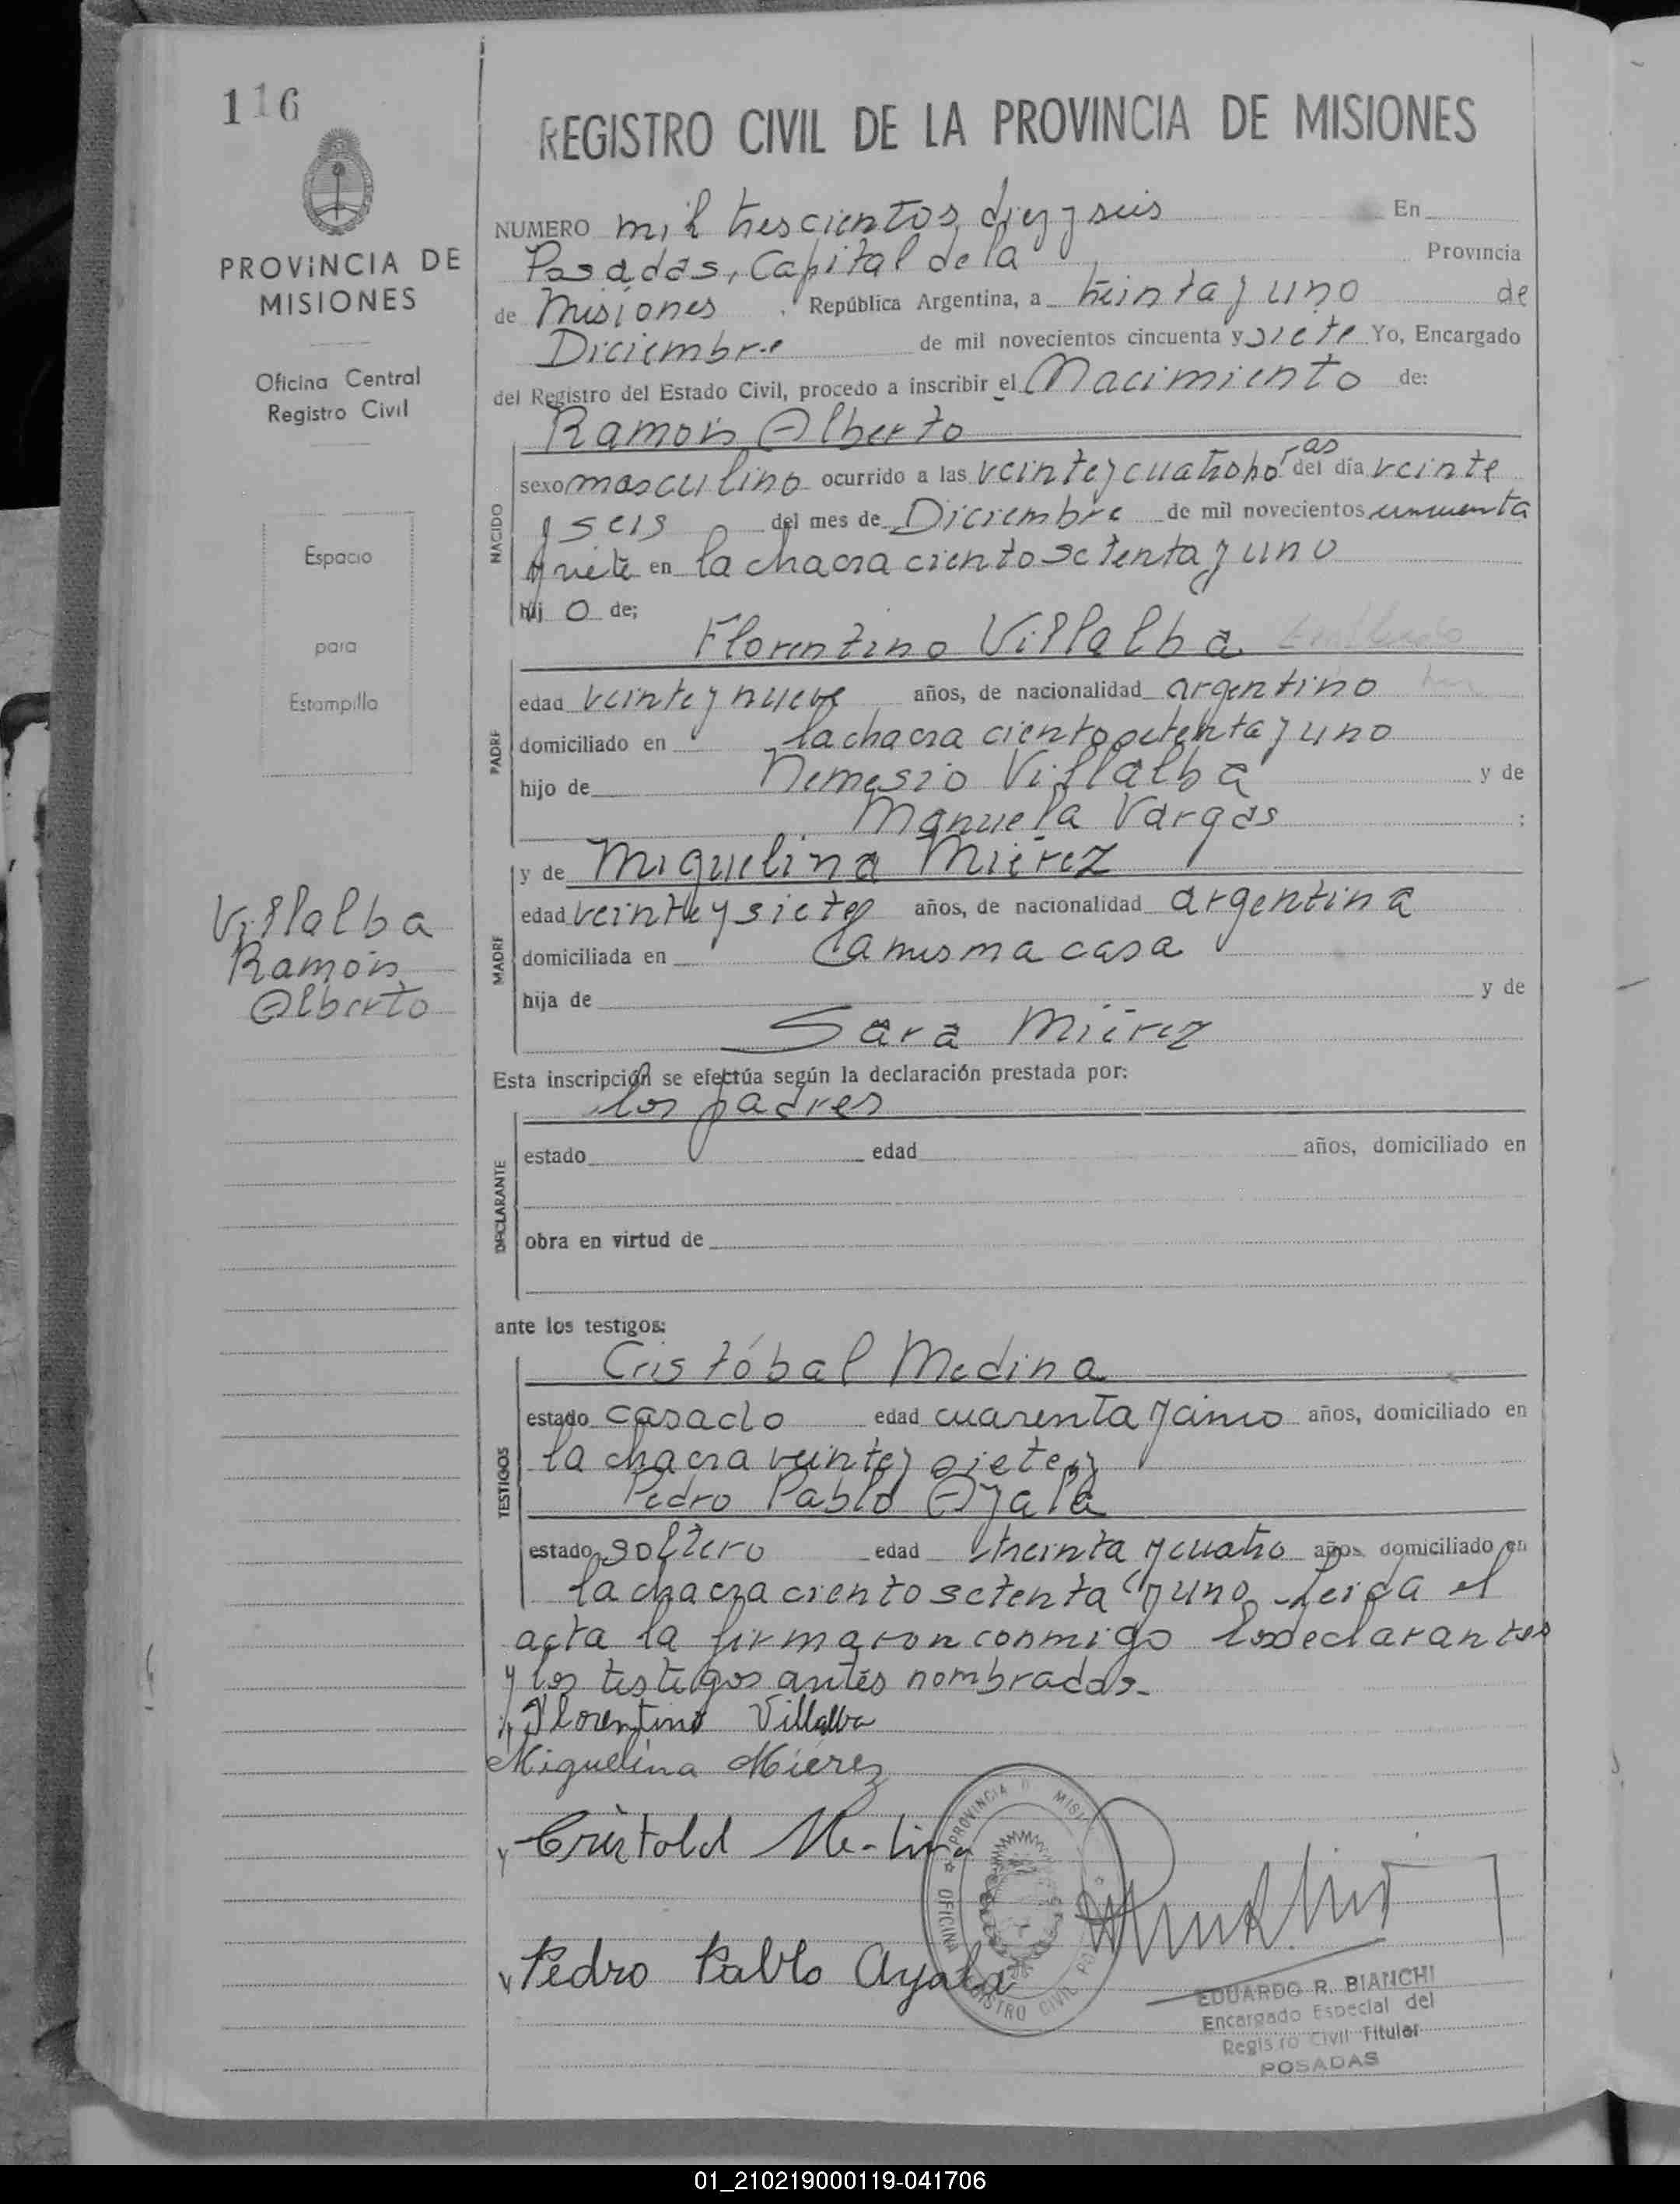 116
PROVINCIA DE
MISIONES
Oficina Central
Registro Civil
Espacio
para
Estampilla
Villalba
Ramón
Alberto
REGISTRO CIVIL DE LA PROVINCIA DE MISIONES
NUMERO mil trescientos diez y seis En
Posadas, Capital de la Provincia
de Misiones, República Argentina, a treinta y uno de
Diciembre de mil novecientos cincuenta y siete Yo, Encargado
del Registro del Estado Civil, procedo a inscribir el Nacimiento de:
Ramón Alberto
NACIDO
sexo masculino ocurrido a las veinte y cuatro horas del día veinte
y seis del mes de Diciembre de mil novecientos cincuenta
y siete en la chacra ciento setenta y uno
hij o de;
Florentino Villalba
PADRE
edad veinte y nueve años, de nacionalidad argentino
domiciliado en la chacra ciento setenta y uno
hijo de Nemesio Villalba y de
Manuela Vargas ;
y de Miguelina Miérez
MADRE
edad veinte y siete años, de nacionalidad argentina
domiciliada en la misma casa
hija de y de
Sara Miérez
Esta inscripción se efectúa según la declaración prestada por:
los padres
DECLARANTE
estado edad años, domiciliado en
obra en virtud de
ante los testigos:
Cristóbal Medina
TESTIGOS
estado casado edad cuarenta y cinco años, domiciliado en
la chacra veinte y siete y
Pedro Pablo Ayala
estado soltero edad treinta y cuatro años, domiciliado en
la chacra ciento setenta y uno. Leida el
acta la firmaron conmigo los declarantes
y los testigos antes nombrados.
Florentino Villalba
Miguelina Miérez
Cristobal Medina
Pedro Pablo Ayala
PROVINCIA D MISI
OFICINA
REGISTRO CIVIL PO
EDUARDO R. BIANCHI
Encargado Especial del
Registro Civil Titular
POSADAS
01_210219000119-041706